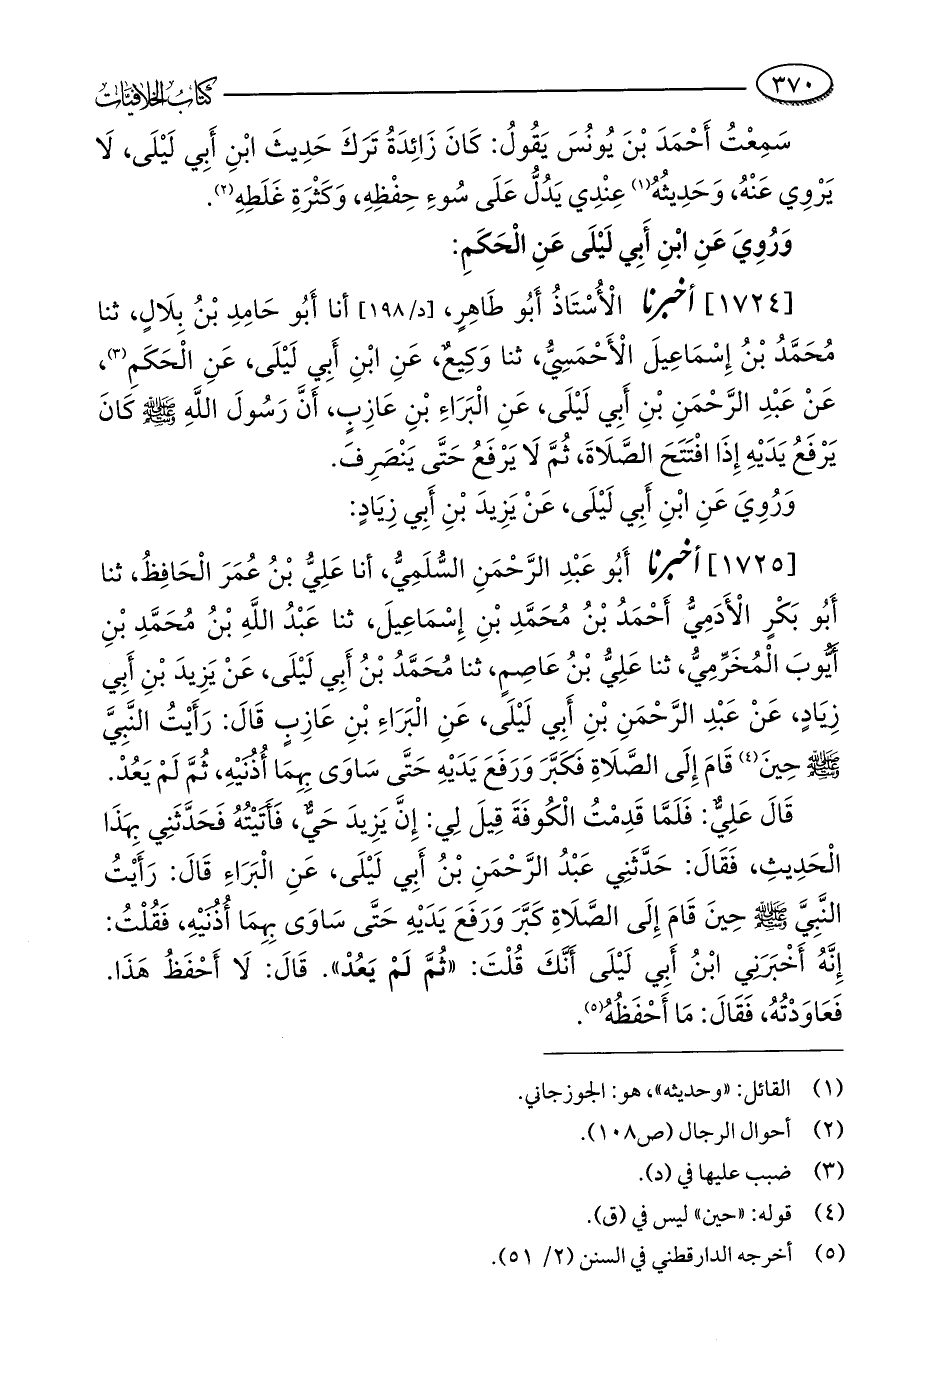 ٣٧٠ كتاب الخلافيات
سَمِعْتُ أَحْمَدَ بْنَ يُونُسَ يَقُولُ: كَانَ زَائِدَةُ تَرَكَ حَدِيثَ ابْنِ أَبِي لَيْلَى، لَا
يَرْوِي عَنْهُ، وَحَدِيثُهُ(١) عِنْدِي يَدُلُّ عَلَى سُوءِ حِفْظِهِ، وَكَثْرَةِ غَلَطِهِ(٢).
وَرُوِيَ عَنِ ابْنِ أَبِي لَيْلَى عَنِ الْحَكَمِ:
[١٧٢٤] أخبرنا الْأُسْتَاذُ أَبُو طَاهِرٍ، [د/١٩٨] أنا أَبُو حَامِدِ بْنُ بِلَالٍ، ثنا
مُحَمَّدُ بْنُ إِسْمَاعِيلَ الْأَحْمَسِيُّ، ثنا وَكِيعٌ، عَنِ ابْنِ أَبِي لَيْلَى، عَنِ الْحَكَمِ(٣)،
عَنْ عَبْدِ الرَّحْمَنِ بْنِ أَبِي لَيْلَى، عَنِ الْبَرَاءِ بْنِ عَازِبٍ، أَنَّ رَسُولَ اللَّهِ ﷺ كَانَ
يَرْفَعُ يَدَيْهِ إِذَا افْتَتَحَ الصَّلَاةَ، ثُمَّ لَا يَرْفَعُ حَتَّى يَنْصَرِفَ.
وَرُوِيَ عَنِ ابْنِ أَبِي لَيْلَى، عَنْ يَزِيدَ بْنِ أَبِي زِيَادٍ:
[١٧٢٥] أخبرنا أَبُو عَبْدِ الرَّحْمَنِ السُّلَمِيُّ، أنا عَلِيُّ بْنُ عُمَرَ الْحَافِظُ، ثنا
أَبُو بَكْرٍ الْأَدَمِيُّ أَحْمَدُ بْنُ مُحَمَّدِ بْنِ إِسْمَاعِيلَ، ثنا عَبْدُ اللَّهِ بْنُ مُحَمَّدِ بْنِ
أَيُّوبَ الْمُخَرِّمِيُّ، ثنا عَلِيُّ بْنُ عَاصِمٍ، ثنا مُحَمَّدُ بْنُ أَبِي لَيْلَى، عَنْ يَزِيدَ بْنِ أَبِي
زِيَادٍ، عَنْ عَبْدِ الرَّحْمَنِ بْنِ أَبِي لَيْلَى، عَنِ الْبَرَاءِ بْنِ عَازِبٍ قَالَ: رَأَيْتُ النَّبِيَّ
ﷺ حِينَ(٤) قَامَ إِلَى الصَّلَاةِ فَكَبَّرَ وَرَفَعَ يَدَيْهِ حَتَّى سَاوَى بِهِمَا أُذُنَيْهِ، ثُمَّ لَمْ يَعُدْ.
قَالَ عَلِيٌّ: فَلَمَّا قَدِمْتُ الْكُوفَةَ قِيلَ لِي: إِنَّ يَزِيدَ حَيٌّ، فَأَتَيْتُهُ فَحَدَّثَنِي بِهَذَا
الْحَدِيثِ، فَقَالَ: حَدَّثَنِي عَبْدُ الرَّحْمَنِ بْنُ أَبِي لَيْلَى، عَنِ الْبَرَاءِ قَالَ: رَأَيْتُ
النَّبِيَّ ﷺ حِينَ قَامَ إِلَى الصَّلَاةِ كَبَّرَ وَرَفَعَ يَدَيْهِ حَتَّى سَاوَى بِهِمَا أُذُنَيْهِ، فَقُلْتُ:
إِنَّهُ أَخْبَرَنِي ابْنُ أَبِي لَيْلَى أَنَّكَ قُلْتَ: «ثُمَّ لَمْ يَعُدْ». قَالَ: لَا أَحْفَظُ هَذَا.
فَعَاوَدْتُهُ، فَقَالَ: مَا أَحْفَظُهُ(٥).
(١) القائل: «وحديثه»، هو: الجوزجاني.
(٢) أحوال الرجال (ص١٠٨).
(٣) ضبب عليها في (د).
(٤) قوله: «حين» ليس في (ق).
(٥) أخرجه الدارقطني في السنن (٢/ ٥١).